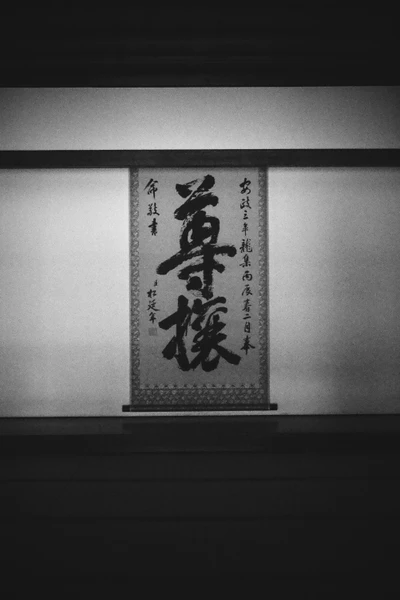 安政三年龍集丙辰春二月奉
尊攘
命敬書 臣松延年